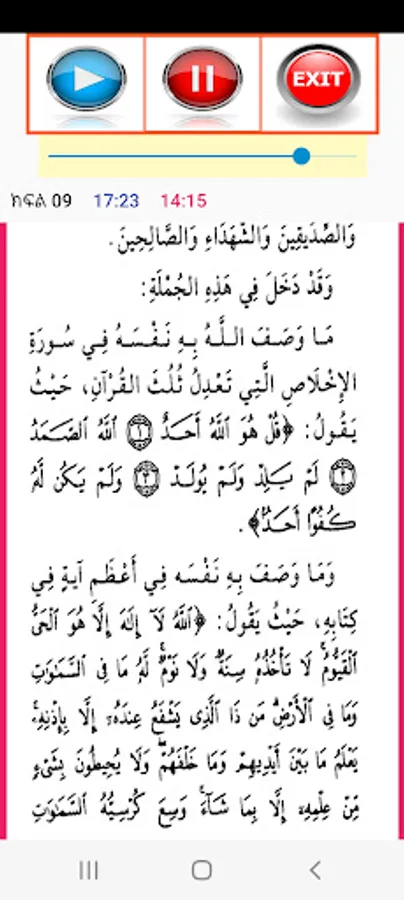 EXIT
ክፍል 09 17:23 14:15
وَالصِّدِّيقِينَ وَالشُّهَدَاءِ وَالصَّالِحِينَ.
وَقَدْ دَخَلَ فِي هَذِهِ الجُمْلَةِ:
مَا وَصَفَ اللَّهُ بِهِ نَفْسَهُ فِي سُورَةِ
الإِخْلَاصِ الَّتِي تَعْدِلُ ثُلُثَ القُرْآنِ، حَيْثُ
يَقُولُ: ﴿قُلْ هُوَ اللَّهُ أَحَدٌ ۝١ اللَّهُ الصَّمَدُ
۝٢ لَمْ يَلِدْ وَلَمْ يُولَدْ ۝٣ وَلَمْ يَكُن لَّهُ
كُفُوًا أَحَدٌ﴾.
وَمَا وَصَفَ بِهِ نَفْسَه فِي أَعْظَمِ آيَةٍ فِي
كِتَابِهِ، حَيْثُ يَقُولُ: ﴿اللَّهُ لَا إِلَٰهَ إِلَّا هُوَ الْحَيُّ
الْقَيُّومُ ۚ لَا تَأْخُذُهُ سِنَةٌ وَلَا نَوْمٌ ۚ لَّهُ مَا فِي السَّمَاوَاتِ
وَمَا فِي الْأَرْضِ ۗ مَن ذَا الَّذِي يَشْفَعُ عِندَهُ إِلَّا بِإِذْنِهِ ۚ
يَعْلَمُ مَا بَيْنَ أَيْدِيهِمْ وَمَا خَلْفَهُمْ ۖ وَلَا يُحِيطُونَ بِشَيْءٍ
مِّنْ عِلْمِهِ إِلَّا بِمَا شَاءَ ۚ وَسِعَ كُرْسِيُّهُ السَّمَاوَاتِ